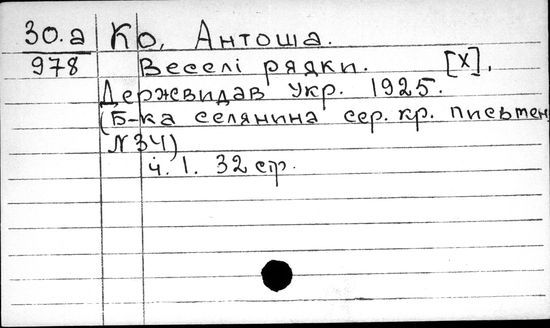 30.а Ко, Антоша.
978 Веселі рядки. [Х].
Держвидав Укр. 1925.
(Б-ка селянина сер. кр. письмен
N34)
ч. 1. 32 стр.